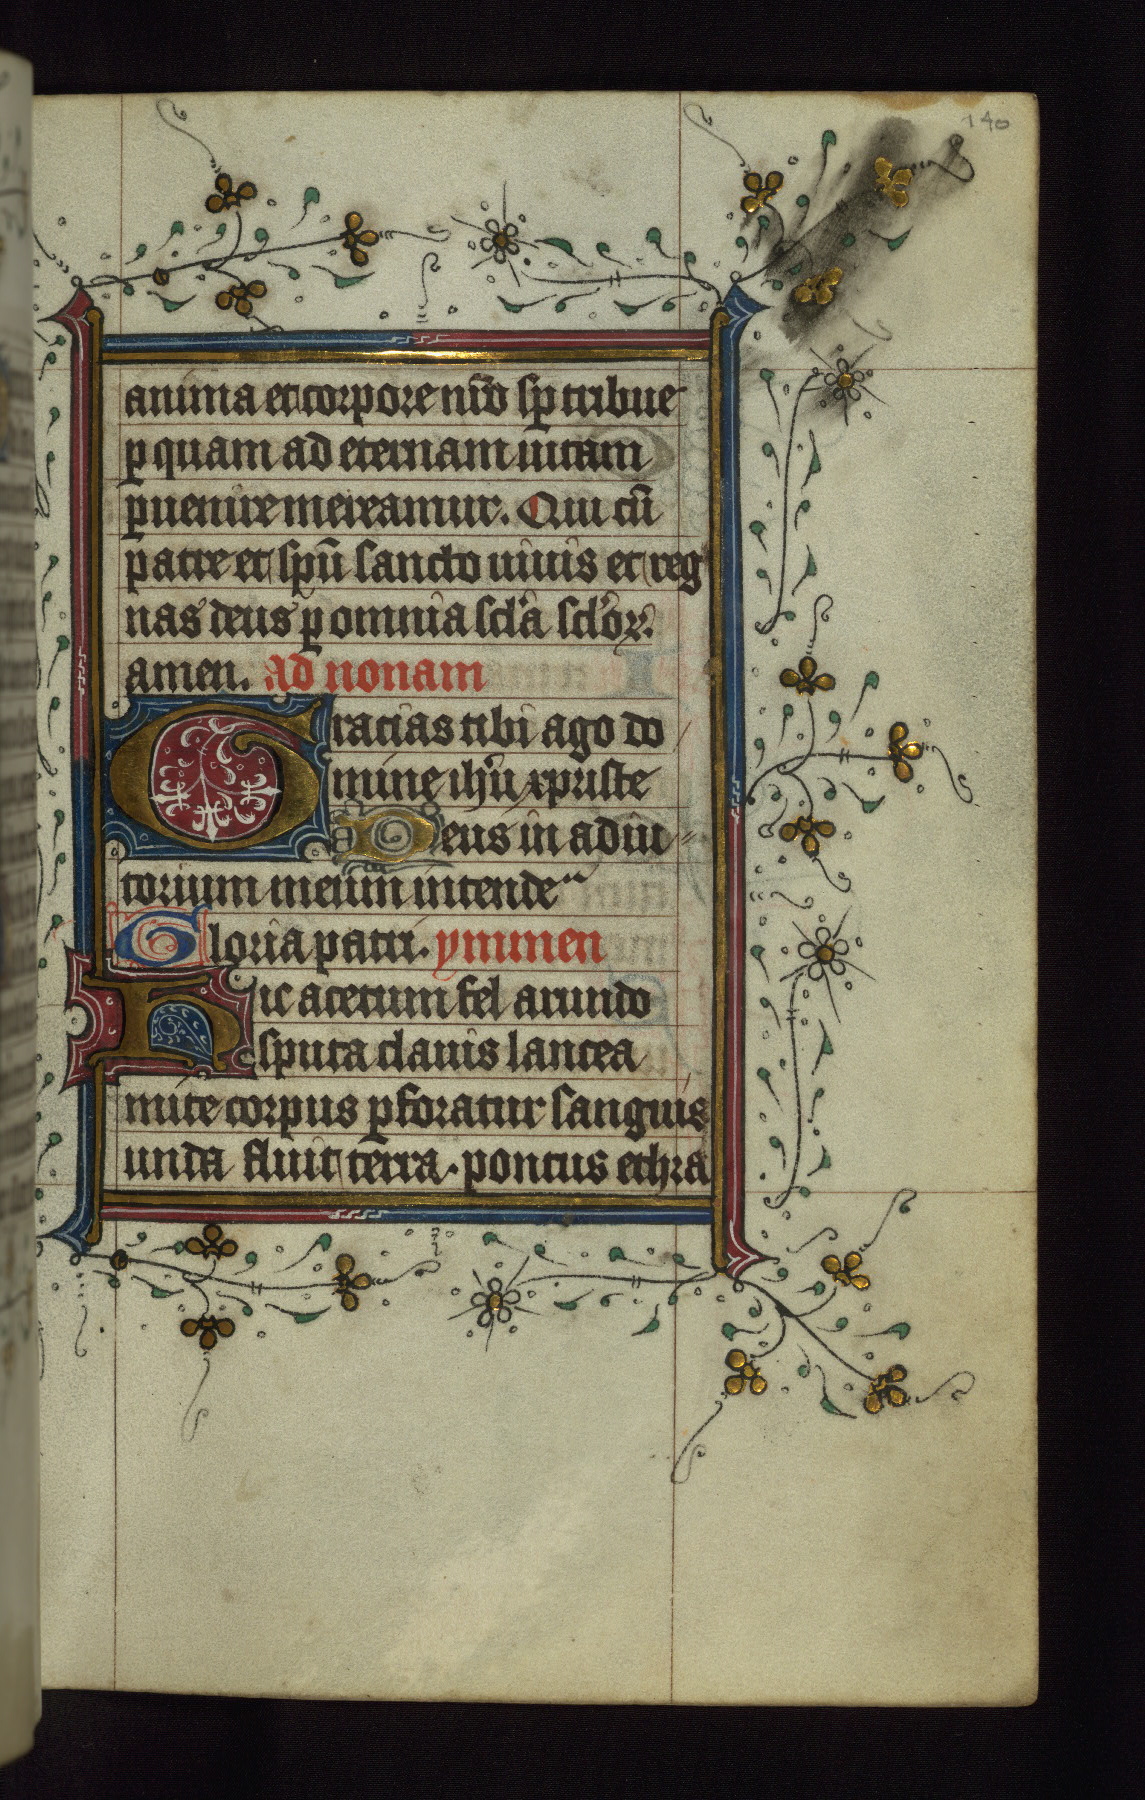 140
anima et corpore nr̄o sp tribue
p quam ad eternam uitam
puenire mereamur. Qui cū
patre et spū sancto uiuis et reg
nas deus p omnia scl'a scl'oꝝ.
amen. ad nonam
Gracias tibi ago do
mine ihū xpriste
Deus in adiu
torium meum intende
Gloria patri. ymmen
Hic acetum fel arundo
sputa clauis lancea
mite corpus pforatur sanguis
unda fluit terra. pontus ethra